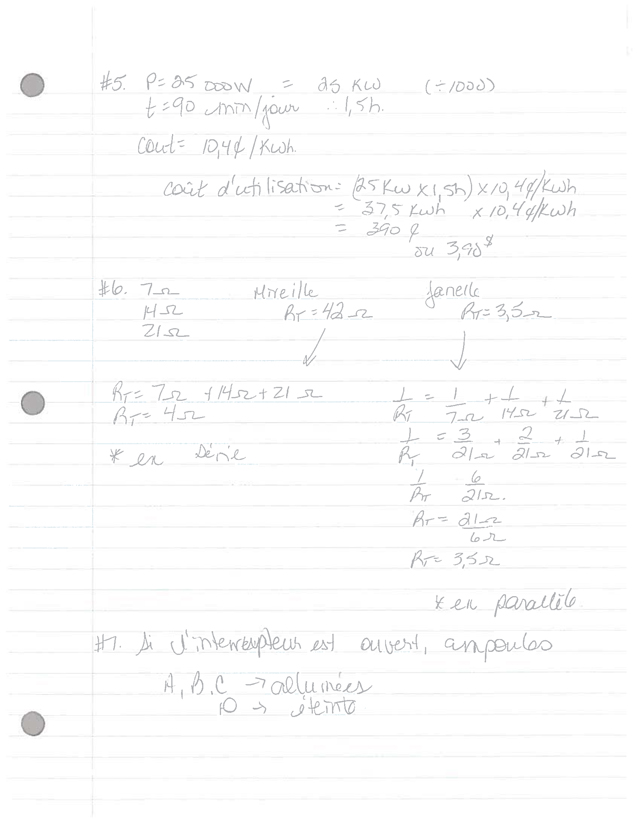 #5. P=25 000W = 25 KW (÷1000)
t=90 min/jour ∴ 1,5h.
Cout= 10,4¢/Kwh.
Coût d'utilisation= (25 Kw x 1,5h) x 10,4¢/Kwh
= 37,5 Kwh x 10,4¢/Kwh
= 390 ¢
ou 3,90$
#6. 7Ω Mireille Janelle
14Ω RT=42Ω RT=3,5Ω
21Ω
RT= 7Ω +14Ω+21Ω
RT= 4Ω
* en série
1/RT = 1/7Ω + 1/14Ω + 1/21Ω
1/RT = 3/21Ω + 2/21Ω + 1/21Ω
1/RT 6/21Ω.
RT= 21Ω/6Ω
RT= 3,5Ω
* en parallèle
#7. Si l'interrupteur est ouvert, ampoules
A, B, C → allumées
D → éteinte